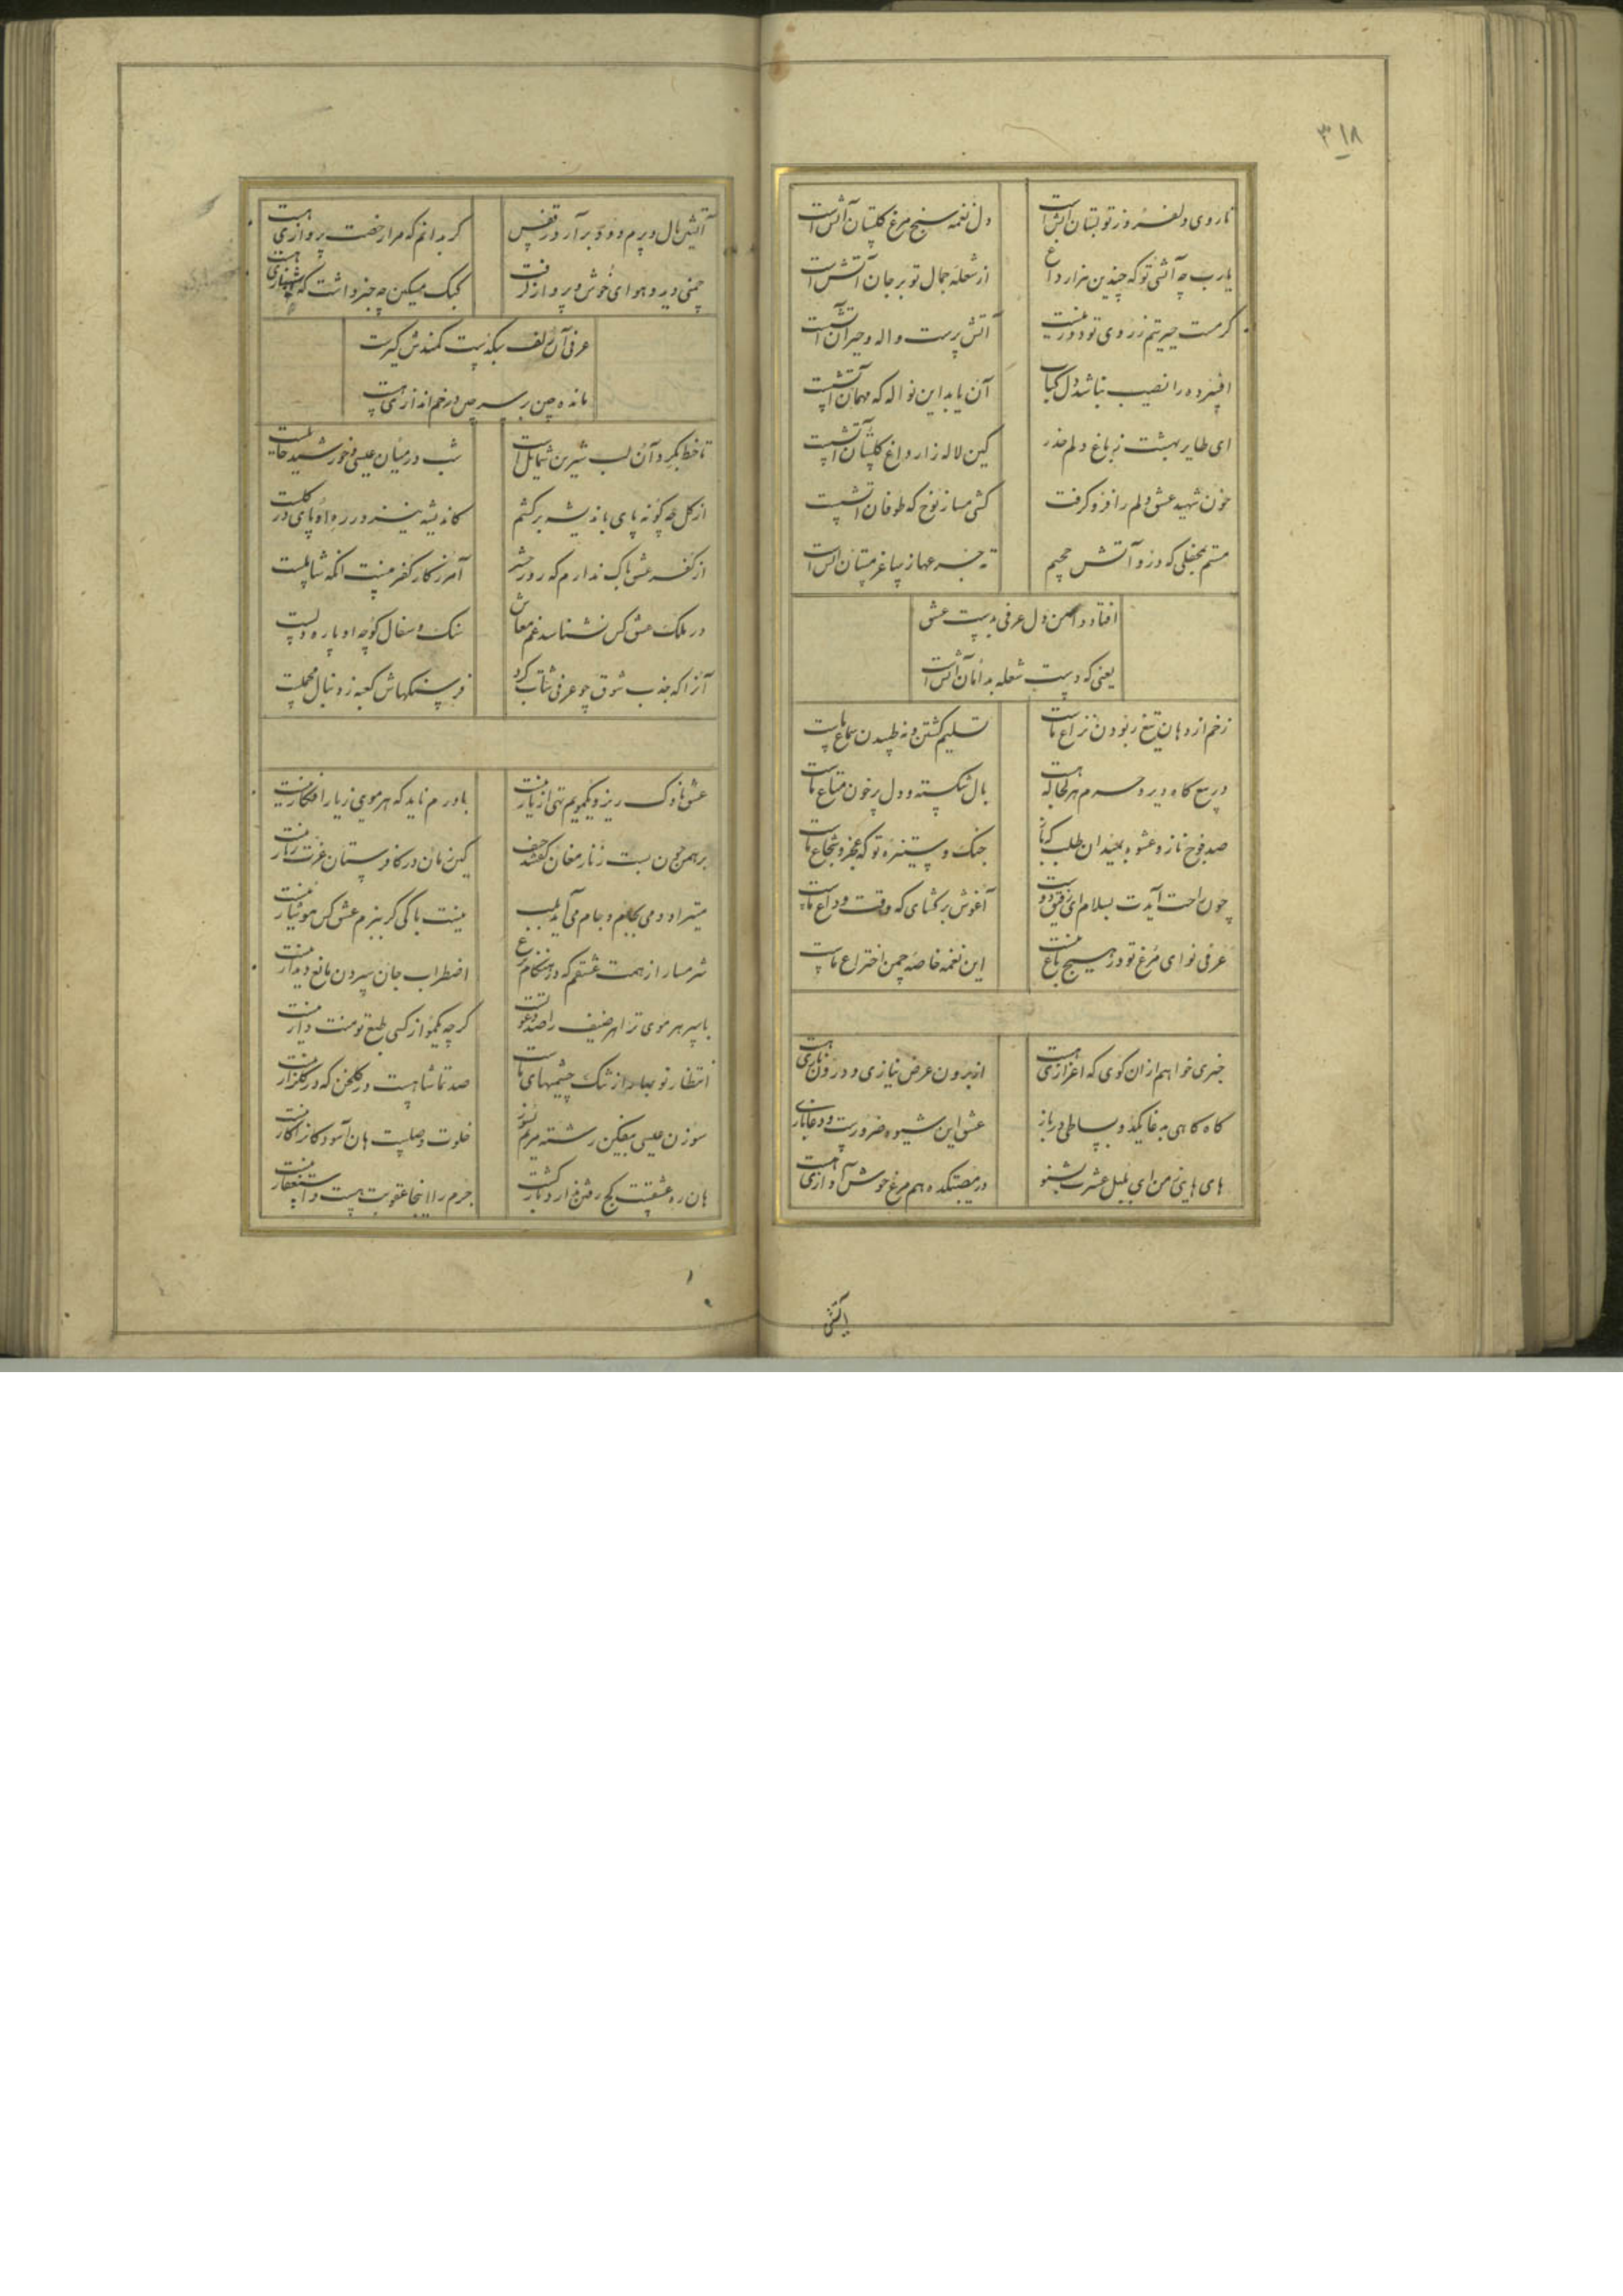 ۳۱۸
تا روی دلفروز تو بستان آتش است
دل نغمه سنج مرغ گلستان آتش است
یارب چه آتشی تو که چندین هزار داغ
از شعله جمال تو بر جان آتش است
گر مست حیرتیم ز روی تو دور نیست
آتش پرست واله و حیران آتش است
افسرده را نصیب نباشد دل کباب
آن یابد این نواله که مهمان آتش است
ای طایر بهشت ز باغ دلم حذر
کین لاله زار داغ گلستان آتش است
خون شهید عشق دلم را فرو گرفت
کشتی مساز نوح که طوفان آتش است
مستم بمحفلی که درو آتش جحیم
ته جرعهٔ ز ساغر مستان آتش است
افتاد دامن دل عرفی بدست عشق
یعنی که دست شعله بدامان آتش است
زخم از دهان تیغ ربودن نزاع ماست
تسلیم گشتن و نه طپیدن سماع ماست
در بیع گاه دیر و حرم هر کجا که هست
بال شکسته و دل پر خون متاع ماست
صد فوج ناز و عشوه بمیدان طلب که باز
جنگ و ستیزه تو که عجز و شجاع ماست
چون راحت آیدت بسلام ای رفیق دوست
آغوش بر گشای که وقت وداع ماست
عرفی نوای مرغ تو در هیچ باغ نیست
این نغمه خاصه چمن اختراع ماست
خبری خواهم ازان کوی که اعزازی هست
از برون عرض نیازی و درون نازی هست
گاه گاهی به دغا یکدو بساطی در باز
عشق این شیوه ضرورست و دغا بازی
های هایی من ای بلبل عشرت بشنو
در مصیبتکده هم مرغ خوش آوازی هست
آتش
آتشین بال و پرم دود بر آرد ز قفس
گر بدانم که مرا رخصت پروازی هست
چمنی دید و هوای خوش و پرواز گرفت
کبک مسکین چه خبر داشت که شهبازی هست
عرفی آن زلف بگذشت کمندش گیرت
مانده چین بر سر چین در خم اندازی هست
تا خط بگرد آن لب شیرین شمایل است
شب در میان عیسی و خورشید حایلست
از گل چگونه پای باندیشه برکشم
کاندیشه نیز در ره او پای در گلست
از کفر عشق باک ندارم که روز حشر
آمرزگار کفر منست آنکه شاملست
در ملک عشق کس نشناسد غم معاش
سنگ و سفال کوچه او پاره دلست
آنرا که جذب شوق چو عرفی شتاب کرد
فرسنگهاش کعبه ز دنبال محملست
عشق ناوک ریز و یکمویم تهی از یار نیست
باورم ناید که هر مویی ز یار افگار نیست
برهمن چون بست زنار مغان گفتند حیف
کین زمان در کافرستان غیرت زنار نیست
میتراود می بکام و جام می آید بلب
نیست باکی گر ببزم عشق کس هوشیار نیست
شرمسار از همت عشقم که در هنگام نزع
اضطراب جان سپردن مانع دیدار نیست
با سر هر موی ترا هر ضیف را صد دعوتست
گر چه یکمو از کسی طبع تو منت دار نیست
انتظار نو بهار از تنگ چشمیهای ماست
صد تماشا هست در گلخن که در گلزار نیست
سوزن عیسی بیفکن رشته مریم بسوز
خلوت وصلست هان آسودگانرا کار نیست
هان ره عشقست کج رفتن ندارد بازگشت
جرم را اینجا عقوبت هست و استغفار نیست